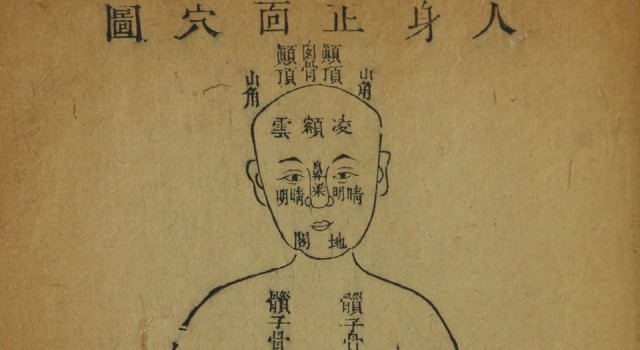 人身正面穴圖
山角
顛頂
囟骨
顛頂
山角
凌額雲
鼻梁
睛明
睛明
地閣
子骨
子骨